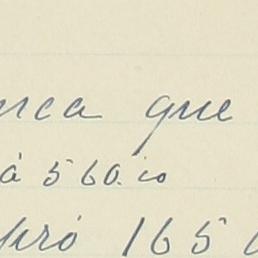 nca que
á 560.10
pró 165